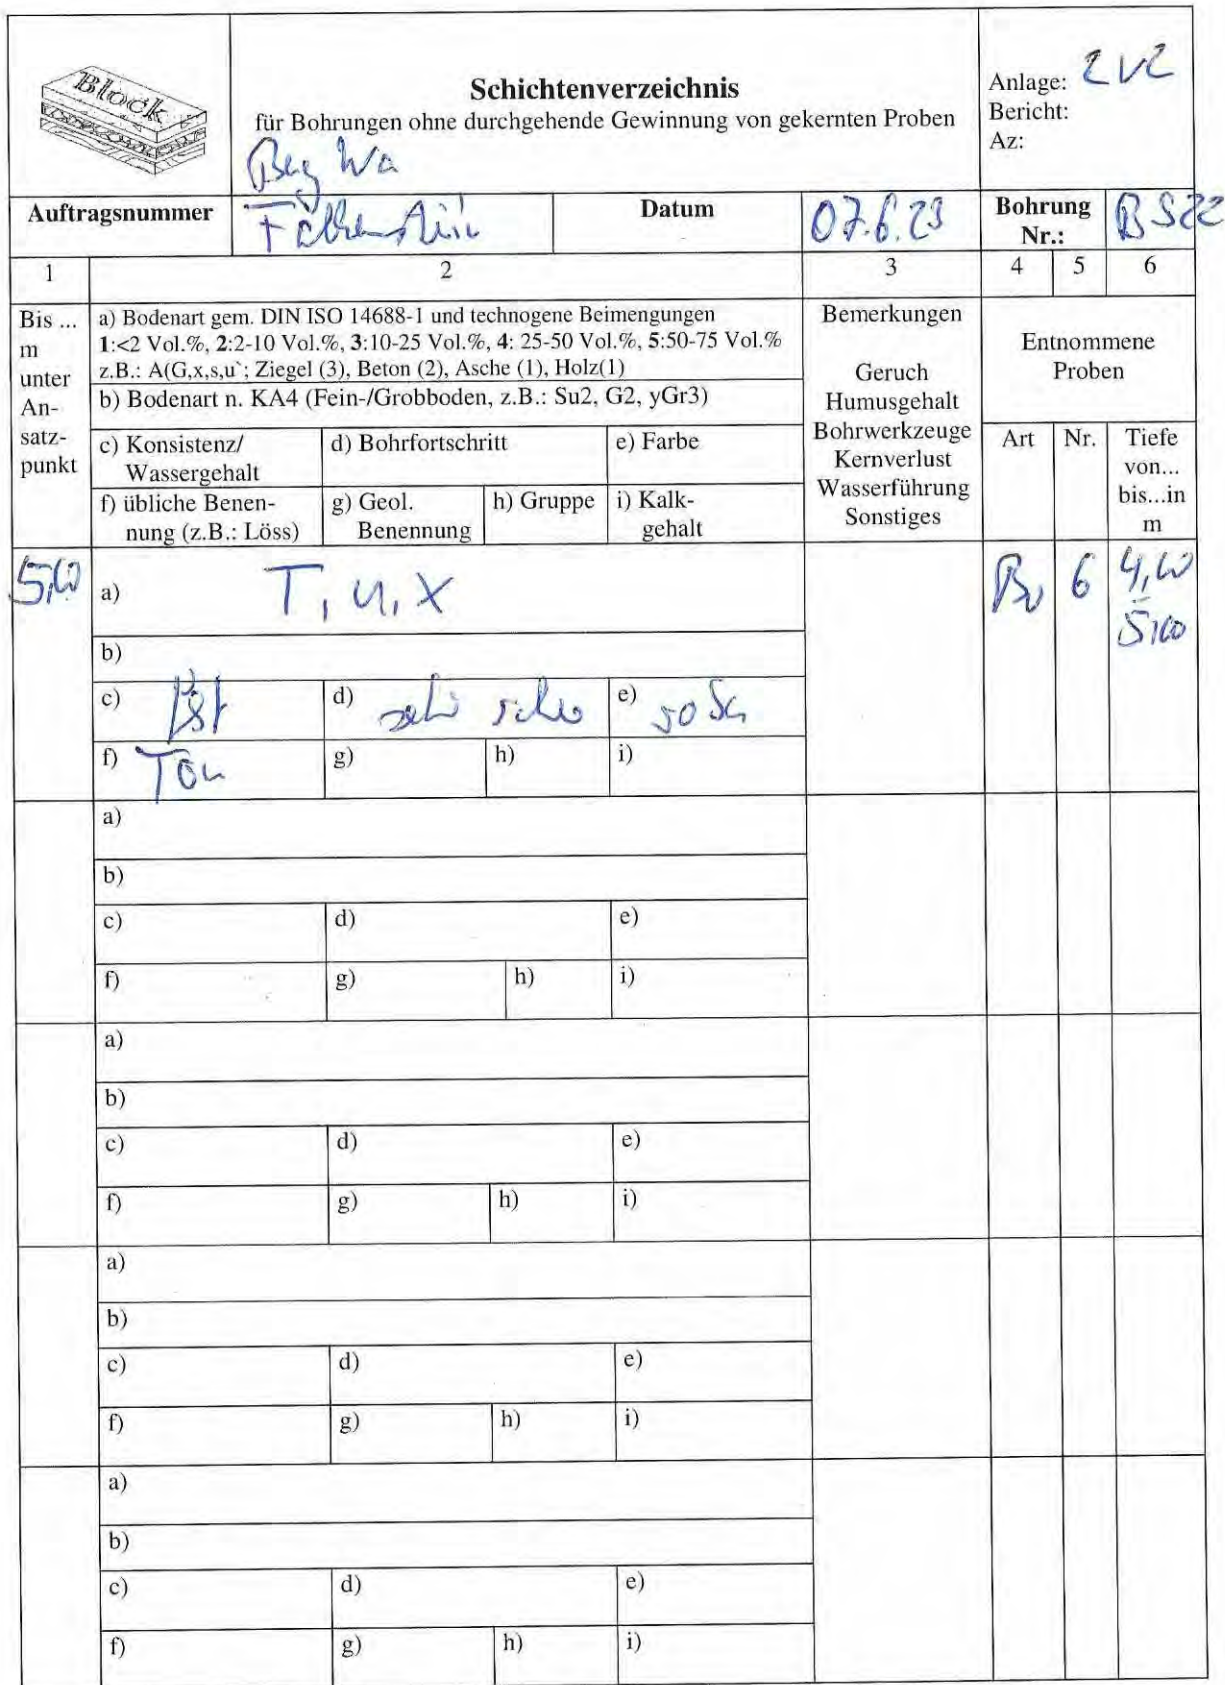 Block
Schichtenverzeichnis
für Bohrungen ohne durchgehende Gewinnung von gekernten Proben
Anlage: 2 v 2
Bericht:
Az:
Auftragsnummer
Datum
07.6.23
Bohrung
Nr.:
BS22
1
2
3
4
5
6
Bis ...
m
unter
An-
satz-
punkt
a) Bodenart gem. DIN ISO 14688-1 und technogene Beimengungen
1:<2 Vol.%, 2:2-10 Vol.%, 3:10-25 Vol.%, 4: 25-50 Vol.%, 5:50-75 Vol.%
z.B.: A(G,x,s,u`; Ziegel (3), Beton (2), Asche (1), Holz(1)
b) Bodenart n. KA4 (Fein-/Grobboden, z.B.: Su2, G2, yGr3)
c) Konsistenz/
Wassergehalt
d) Bohrfortschritt
e) Farbe
f) übliche Benen-
nung (z.B.: Löss)
g) Geol.
Benennung
h) Gruppe
i) Kalk-
gehalt
Bemerkungen
Geruch
Humusgehalt
Bohrwerkzeuge
Kernverlust
Wasserführung
Sonstiges
Entnommene
Proben
Art
Nr.
Tiefe
von...
bis...in
m
5,00
a) T, u, x
b)
c)
d) sehr
e)
f) Ton
g)
h)
i)
6
4,00
-
5,00
a)
b)
c)
d)
e)
f)
g)
h)
i)
a)
b)
c)
d)
e)
f)
g)
h)
i)
a)
b)
c)
d)
e)
f)
g)
h)
i)
a)
b)
c)
d)
e)
f)
g)
h)
i)